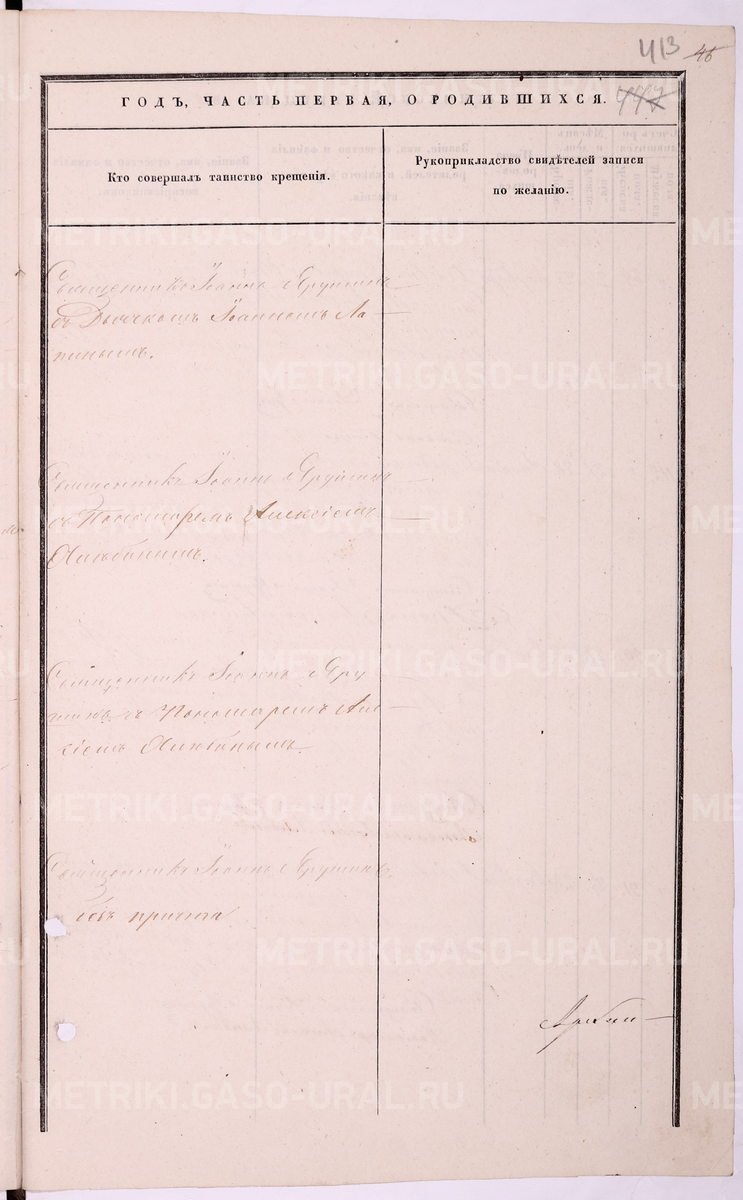 413 46
ГОДЪ, ЧАСТЬ ПЕРВАЯ, О РОДИВШИХСЯ. 447
Кто совершалъ таинство крещенія.
Рукоприкладство свидѣтелей записи
по желанію.
Священникъ Іоаннъ Ярушинъ
съ Дьячкомъ Іоанномъ Ла-
пинымъ.
Священникъ Іоаннъ Ярушинъ
съ Пономаремъ Алексіемъ
Священникъ Іоаннъ Яру
шинъ съ Пономаремъ Але
ксіемъ
Священникъ Іоаннъ Ярушинъ,
безъ причта
METRIKI.GASO-URAL.RU